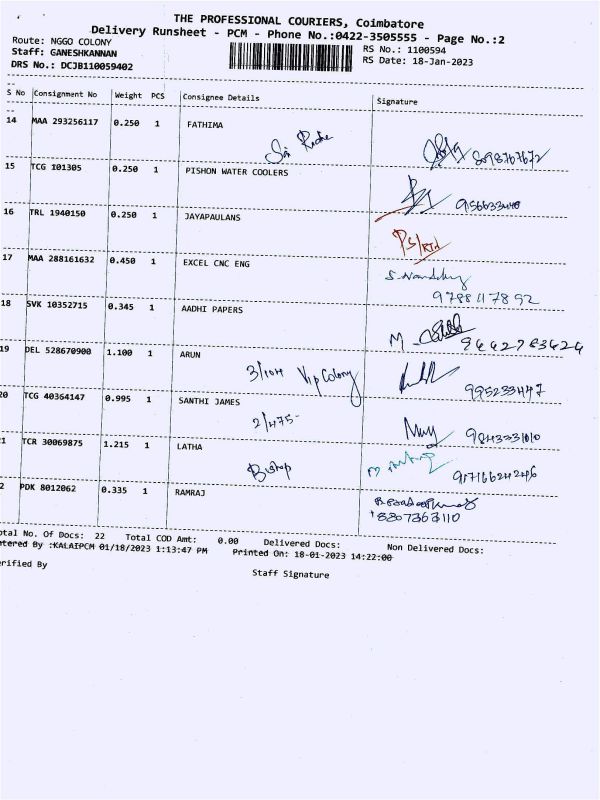 THE PROFESSIONAL COURIERS, Coimbatore
Delivery Runsheet - PCM - Phone No.:0422-3505555 - Page No.:2
Route: NGGO COLONY
RS No.: 1100594
Staff: GANESHKANNAN
RS Date: 18-Jan-2023
DRS No.: DCJB110059402
S No Consignment No Weight PCS Consignee Details Signature
14 MAA 293256117 0.250 1 FATHIMA
15 TCG 101305 0.250 1 PISHON WATER COOLERS
16 TRL 1940150 0.250 1 JAYAPAULANS
17 MAA 288161632 0.450 1 EXCEL CNC ENG
9788117892
18 SVK 10352715 0.345 1 AADHI PAPERS
9442783424
19 DEL 528670900 1.100 1 ARUN
3/104 Vip Colony
995233447
20 TCG 40364147 0.995 1 SANTHI JAMES
2/475-
9843331010
1 TCR 30069875 1.215 1 LATHA
Bishop
2 PDK 8012062 0.335 1 RAMRAJ
8807363110
otal No. Of Docs: 22 Total COD Amt: 0.00 Delivered Docs: Non Delivered Docs:
ntered By :KALAIPCM 01/18/2023 1:13:47 PM Printed On: 18-01-2023 14:22:00
erified By
Staff Signature